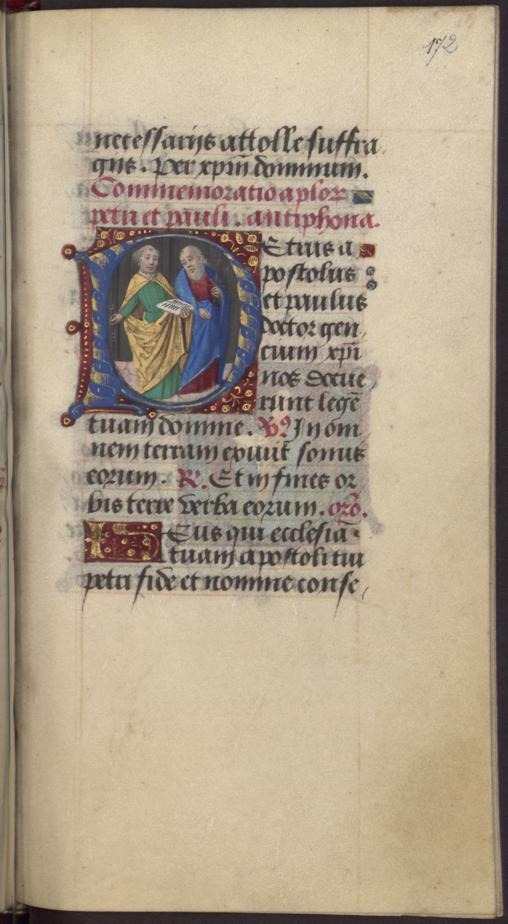 172
necessariis attolle suffra
giis. Per xpm̄ dominum.
Commemoratio aplor
petri et pauli. antiphona.
PEtrus a
postolus
et paulus
doctor gen
cium xpi
nos docue
runt legē
tuam domine. V. In om
nem terram exivit sonus
eorum. R. Et in fines or
bis terre verba eorum. orō.
DEus qui ecclesiā
tuam apostoli tui
petri fide et nomine conse